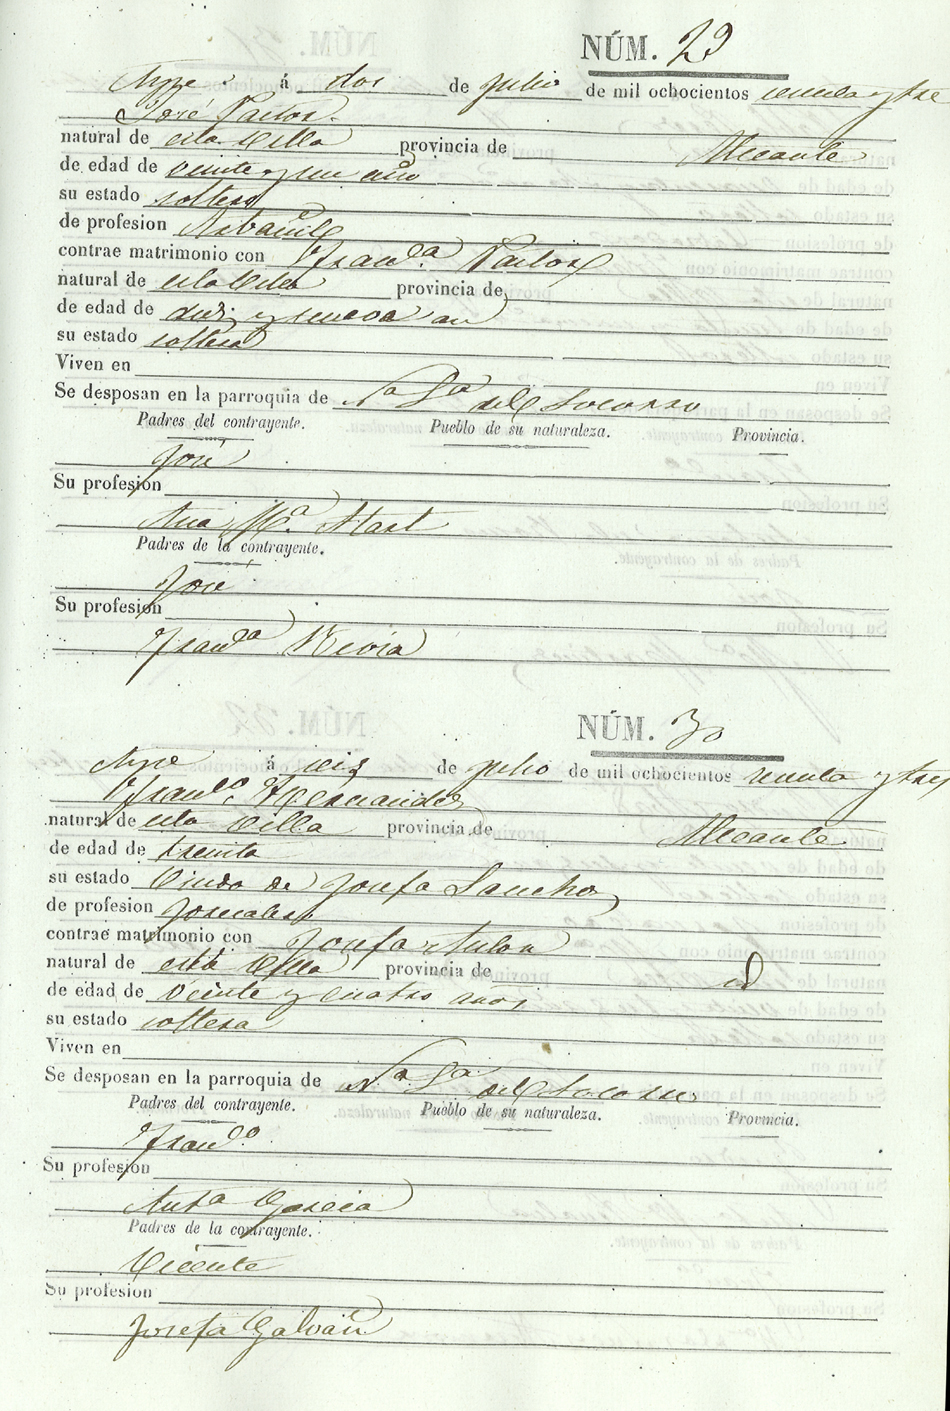 NÚM. 29
Aspe á dos de julio de mil ochocientos sesenta y tres
José Pastor
natural de esta Villa provincia de Alicante
de edad de veinte y un año
su estado soltero
de profesion Albañil
contrae matrimonio con Fran.ca Pastor
natural de esta Villa provincia de
de edad de diez y nueva añ
su estado soltera
Viven en
Se desposan en la parroquia de N.a S.a del Socorro
Padres del contrayente. Pueblo de su naturaleza. Provincia.
José
Su profesion
Ana M.a
Padres de la contrayente.
José
Su profesion
Fran.ca
NÚM. 30
Aspe á seis de julio de mil ochocientos sesenta y tres
Fran.co Hernandez
natural de esta Villa provincia de Alicante
de edad de treinta
su estado Viudo de Josefa Sancho
de profesion Jornalero
contrae matrimonio con Josefa
natural de esta Villa provincia de id
de edad de veinte y cuatro años
su estado soltera
Viven en
Se desposan en la parroquia de N.a S.a del Socorro
Padres del contrayente. Pueblo de su naturaleza. Provincia.
Fran.co
Su profesion
Ant.a Garcia
Padres de la contrayente.
Vicente
Su profesion
Josefa Galvañ